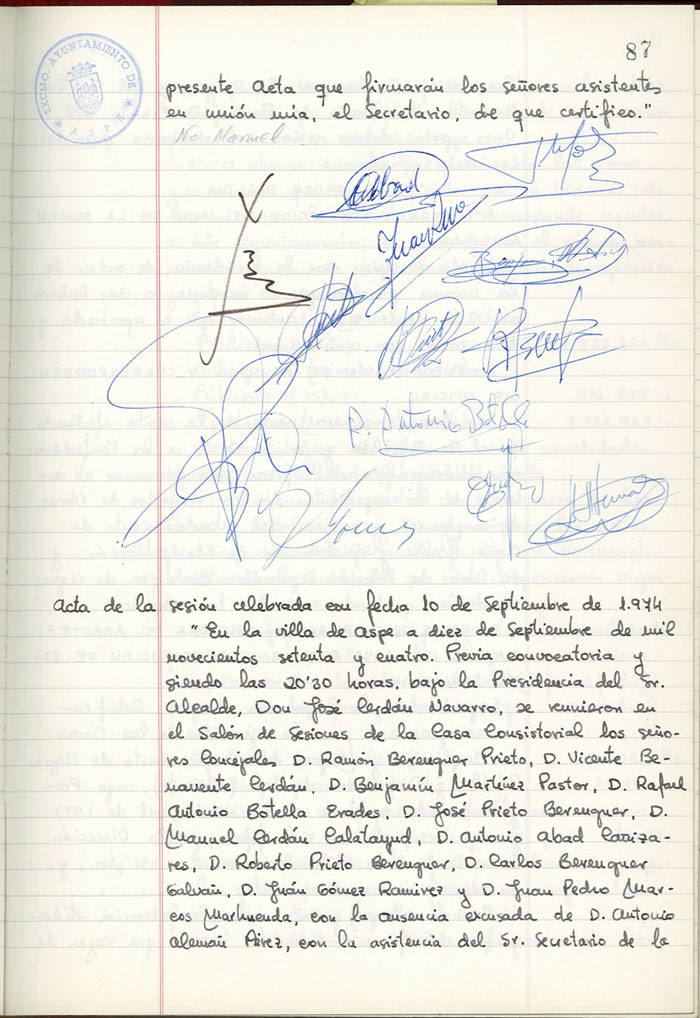 EXCMO. AYUNTAMIENTO DE
A S P E
87
presente Acta que firmarán los señores asistentes
en unión mia, el Secretario, de que certifico."
No Manuel
Abad
Juan
R. Antonio Botella
Gomez
Acta de la sesión celebrada con fecha 10 de Septiembre de 1.974
"En la villa de Aspe a diez de Septiembre de mil
novecientos setenta y cuatro. Previa convocatoria y
siendo las 20'30 horas, bajo la Presidencia del Sr.
Alcalde, Don José Cerdán Navarro, se reunieron en
el Salón de Sesiones de la Casa Consistorial los seño-
res Concejales D. Ramón Berenguer Prieto, D. Vicente Be-
navente Cerdán, D. Benjamín Martínez Pastor, D. Rafael
Antonio Botella Erades, D. José Prieto Berenguer, D.
Manuel Cerdán Calatayud, D. Antonio Abad Cañiza-
res, D. Roberto Prieto Berenguer, D. Carlos Berenguer
Galvañ, D. Juán Gómez Ramirez y D. Juan Pedro Mar-
cos Marhuenda, con la ausencia excusada de D. Antonio
Alemañ Pérez, con la asistencia del Sr. Secretario de la